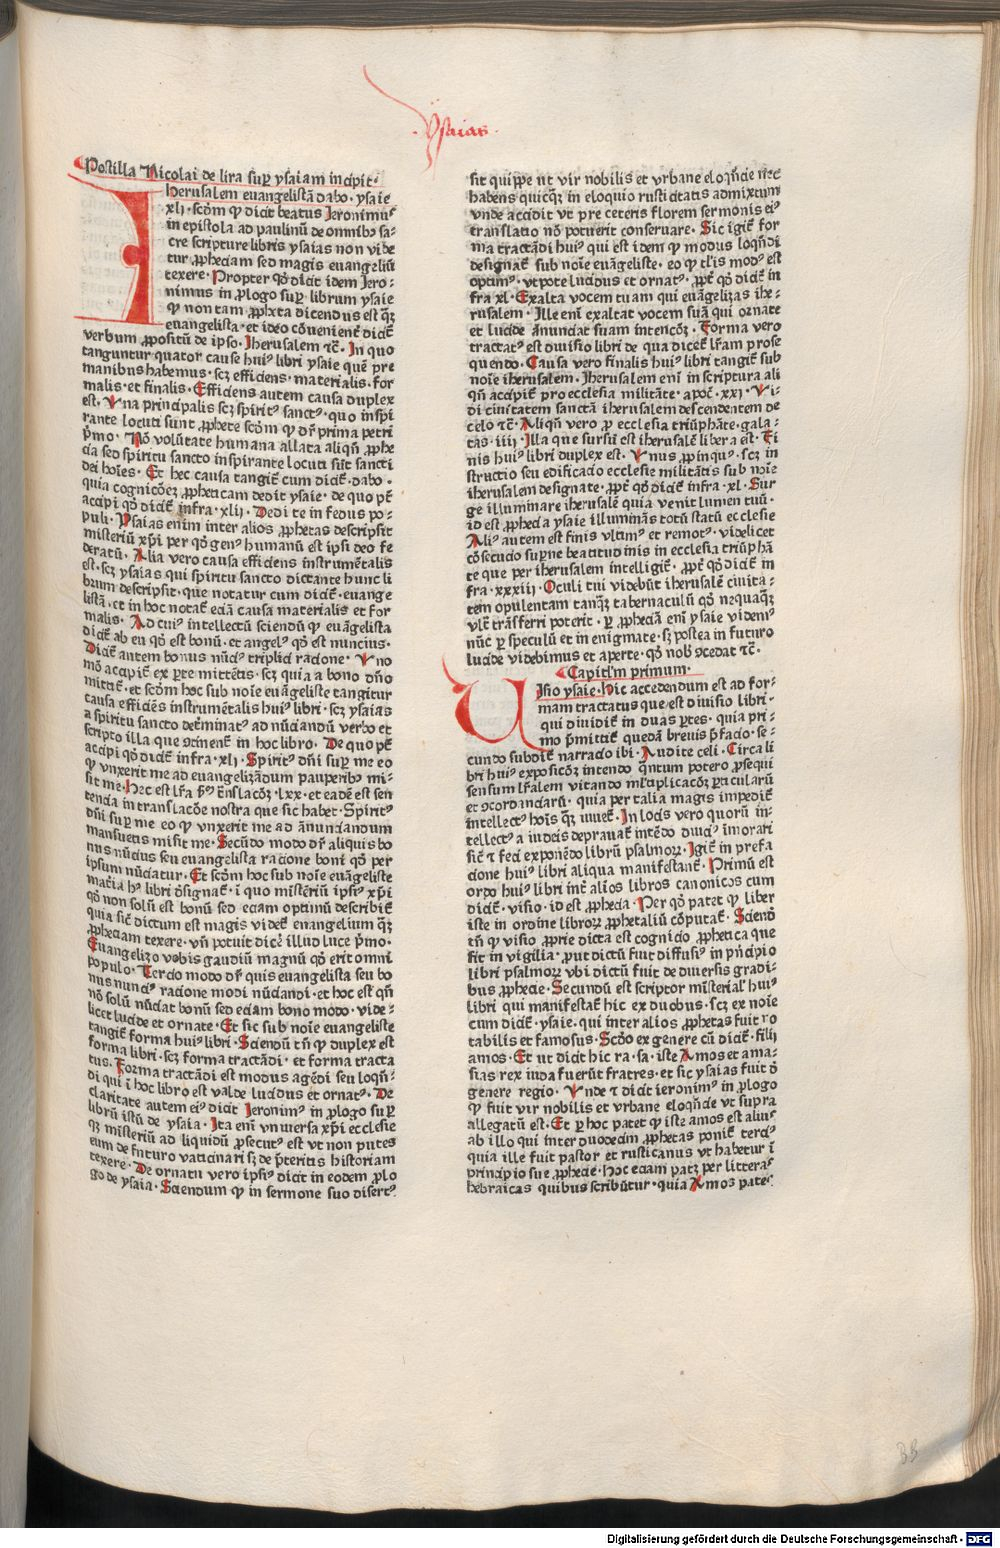 ·ysaias·
Postilla Nicolai de lira suꝑ ysaiam incipit·
Iherusalem euangelistā dabo· ysaie
xli· scd̄m ꝙ dicit beatus Jeronimꝰ
in epistola ad paulinū de omnibꝫ sa⸗
cre scripture libris ysaias non vide
tur ꝓphetiam sed magis euangeliū
texere· Propter qd̄ dicit idem Jero⸗
nimus in ꝓlogo suꝑ librum ysaie
ꝙ non tam ꝓpheta dicendus est qͣꝫ
euangelista· et ideo cōuenient̄ dicit̄
verbum ꝓpositū de ipso· Jherusalem ⁊c̄· In quo
tanguntur quatuor cause huiꝰ libri ysaie quē pre
manibus habemus· scꝫ efficiens· materialis· for
malis· et finalis· Efficiens autem causa duplex
est· Vna principalis scꝫ spiritꝰ sanctꝰ· quo inspi
rante locuti sunt ꝓphete scd̄m ꝙ dr̄ prima petri
pͥmo· Nō volūtate humana allata aliqn̄ ꝓphe
cia sed spiritu sancto inspirante locuti sūt sancti
dei hoīes· Et hec causa tangit̄ cum dicit̄· dabo·
quia cognicōeꝫ ꝓpheticam dedit ysaie· de quo pt̄
accipi qd̄ dicit̄ infra· xlii· Dedi te in fedus po⸗
puli· Ysaias enim inter alios ꝓphetas descripsit
misteriū xp̄i per qd̄ genꝰ humanū est ipsi deo fe
deratū· Alia vero causa efficiens instrumētalis
est· scꝫ ysaias qui spiritu sancto dictante hunc li
brum descripsit· que notatur cum dicit̄· euange
listā· et in hoc notat̄ eciā causa materialis et for
malis· Ad cuiꝰ intellectū sciendū ꝙ euāgelista
dicit̄ ab eu qd̄ est bonū· et angelꝰ qd̄ est nuncius·
Dicit̄ autem bonus nūciꝰ triplici racione· Vno
mō accipit̄ ex ꝑte mittētis· scꝫ quia a bono dn̄o
mittit̄· et scd̄m hoc sub noīe euāgeliste tangitur
causa efficiēs instrumētalis huiꝰ libri· scꝫ ysaias
a spiritu sancto det̄minatꝰ ad nūciandū verbo et
scripto illa que ꝯtinent̄ in hoc libro· De quo pt̄
accipi qd̄ dicit̄ infra· xli· Spiritꝰ dn̄i suꝑ me eo
ꝙ vnxerit me ad euangelizādum pauperibꝫ mi⸗
sit me· Hec est lr̄a
tencia in translacōe nostra que sic habet· Spiritꝰ
dn̄i suꝑ me eo ꝙ vnxerit me ad ānunciandum
mansuetis misit me· Secūdo modo dr̄ aliquis bo
nus nūcius seu euangelista racione boni qd̄ per
ipsum nūciatur· Et scd̄m hoc sub noīe euāgeliste
mat̄ia hꝰ libri ꝺsignat̄· ī quo misteriū ipsiꝰ xp̄i
qd̄ non solū est bonū sed eciam optimū describit̄
quia sic̄ dictum est magis videt̄ euangelium qͣꝫ
ꝓphetiam texere· vn̄ potuit dice illud luce pͥmo·
Euangelizo vobis gaudiū magnū qd̄ erit omni
populo· Tercio modo dr̄ quis euangelista seu bo
nus nunciꝰ racione modi nūciandi· et hoc est qn̄
nō solū nūciat bonū sed eciam bono modo· vide⸗
licet lucide et ornate· Et sic sub noīe euangeliste
tangit̄ forma huiꝰ libri· Sciendū tn̄ ꝙ duplex est
forma libri· scꝫ forma tractādi· et forma tracta
tus· Forma tractādi est modus agēdi seu loqn̄⸗
di qui ī hoc libro est valde lucidus et ornatꝰ· De
claritate autem eiꝰ dicit Jeronimꝰ in ꝓlogo suꝑ
librū istū de ysaia· Ita enī vniuersa xp̄i ecclesie
qꝫ misteriū ad liquidū ꝓsecutꝰ est vt non putes
eum de futuro vaticinari sꝫ de p̄teritis historiam
texere· De ornatu vero ipsiꝰ dicit in eodem ꝓlo
go de ysaia· Sciendum ꝙ in sermone suo disertꝰ
sit quippe ut vir nobilis et vrbane eloqn̄cie nec
habens quicqͣꝫ in eloquio rusticitatis admixtum
vnde accidit vt pre ceteris florem sermonis eiꝰ
translatio nō potuerit conseruare· Sic igit̄ for
ma tractādi huiꝰ qui est idem ꝙ modus loqn̄di
designat̄ sub noīe euāgeliste· eo ꝙ tl̓is modꝰ est
optimꝰ· vtpote lucidus et ornatꝰ· ꝓpt̄ qd̄ dicit̄ in
fra xl· Exalta vocem tuam qui euāgelizas ihe⸗
rusalem· Ille enī exaltat vocem suā qui ornate
et lucide ānunciat suam intencōꝫ· Forma vero
tractatꝰ est diuisio libri de qua dicet̄ lr̄am prose
quendo· Causa vero finalis huiꝰ libri tangit̄ sub
noīe iherusalem· Jherusalem enī in scriptura ali
qn̄ accipit̄ pro ecclesia militāte· apoc̄· xxi· Vi⸗
di ciuitatem sanctā iherusalem descendentem de
celo ⁊c̄· Aliqn̄ vero ꝓ ecclesia triūphāte· gala⸗
tas· iiii· Illa que sursū est iherusalē libera est· Fi
nis huiꝰ libri duplex est· Vnus ꝓpinquꝰ· scꝫ in
structio seu edificacio ecclesie militātis sub noīe
iherusalem designate· ꝓpt̄ qd̄ dicit̄ infra· xl· Sur
ge illuminare iherusalē quia venit lumen tuū·
id est ꝓphecia ysaie illuminās totū statū ecclesie
Aliꝰ autem est finis vltimꝰ et remotꝰ· videlicet
cōsecucio superne beatitudinis in ecclesia triūphā
te que per iherusalem intelligit̄· ꝓpt̄ qd̄ dicit̄ in
fra· xxxiii· Oculi tui videbūt iherusalē ciuita⸗
tem opulentam tanqͣꝫ tabernaculū qd̄ nequaqͣꝫ
vlt̄ trāsferri poterit· ꝑ ꝓpheciā enī ysaie videmꝰ
nūc ꝑ speculū et in enigmate· sꝫ postea in futuro
lucide videbimus et aperte· qd̄ nob̓ ꝯcedat ⁊c̄·
Capitl̓m primum·
Visio ysaie· Hic accedendum est ad for⸗
mam tractatus que est diuisio libri·
qui diuidit̄ in duas ꝑtes· quia pri⸗
mo p̄mittit̄ quedā breuis p̄facio· se⸗
cundo subdit̄ narracio ibi· Audite celi· Circa li
bri huiꝰ exposicōꝫ intendo qͣntum potero ꝓsequi
sensum lr̄alem vitando ml̓tiplicacōꝫ ꝑticularū
et ꝯcordanciarū· quia per talia magis impedit̄
intellectꝰ hoīs qͣꝫ iuuet̄· In locis vero quorū in⸗
tellectꝰ a iudeis deprauat̄ intēdo diuciꝰ īmorari
sic̄ ⁊ feci exponēdo librū psalmorꝫ· Igit̄ in prefa
cione huiꝰ libri aliqua manifestant̄· Primū est
ordo huiꝰ libri int̄ alios libros canonicos cum
dicit̄· visio· id est ꝓphecia· Per qd̄ patet ꝙ liber
iste in ordine librorꝫ ꝓphetaliū cōputat̄· Sciendū
tn̄ ꝙ visio ꝓprie dicta est cognicio ꝓphetica que
fit in vigilia· ꝓut dictū fuit diffusiꝰ in pͥncipio
libri psalmorꝫ vbi dictū fuit de diuersis gradi⸗
bus ꝓphecie· Secundū est scriptor mīsterial̓ huiꝰ
libri qui manifestat̄ hic ex duobus· scꝫ ex noīe
cum dicit̄· ysaie· qui inter alios ꝓphetas fuit no
tabilis et famosus· Scd̄o ex genere cū dicit̄· filii
amos· Et ut dicit hic ra· sa· iste Amos et ama⸗
sias rex iuda fuerūt fratres· et sic ysaias fuit d̄
genere regio· Vnde ⁊ dicit ieronimꝰ in ꝓlogo
ꝙ fuit vir nobilis et vrbane eloqn̄cie vt supra
allegatū est· Et ꝑ hoc patet ꝙ iste amos est aliꝰ
ab illo qui inter duodecim ꝓphetas ponit̄ terciꝰ
quia ille fuit pastor et rusticanus vt habetur ī
principio sue ꝓphecie· Hoc eciam patꝫ per litteras
hebraicas quibus scribūtur· quia Amos pater
BB
Digitalisierung gefördert durch die Deutsche Forschungsgemeinschaft · DFG